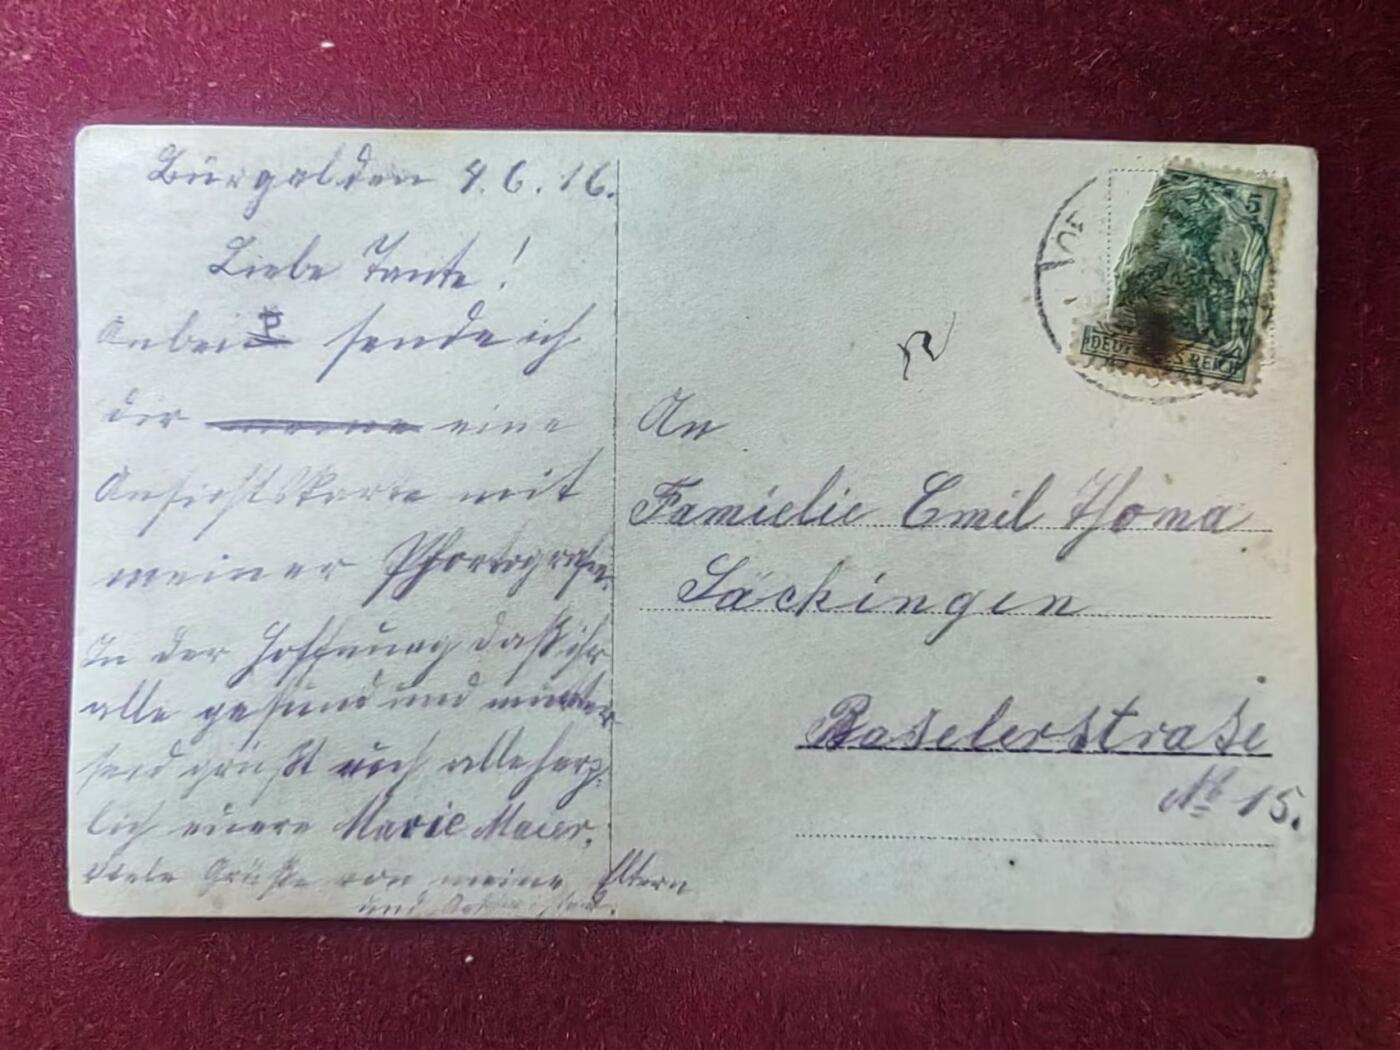 Bürgalden 4.6.16.
Liebe Tante!
Anbei sende ich
dir eine
Ansichtskarte mit
meiner Phortografie.
In der Hoffnung daß ihr
alle gesund und munter
seid grüßt euch alle herz-
lich euere Marie Maier.
Viele Grüße von meine Eltern
und
An
Familie Emil Thoma
Säckingen
Baselerstraße
No 15.
5
DEUTSCHES REICH